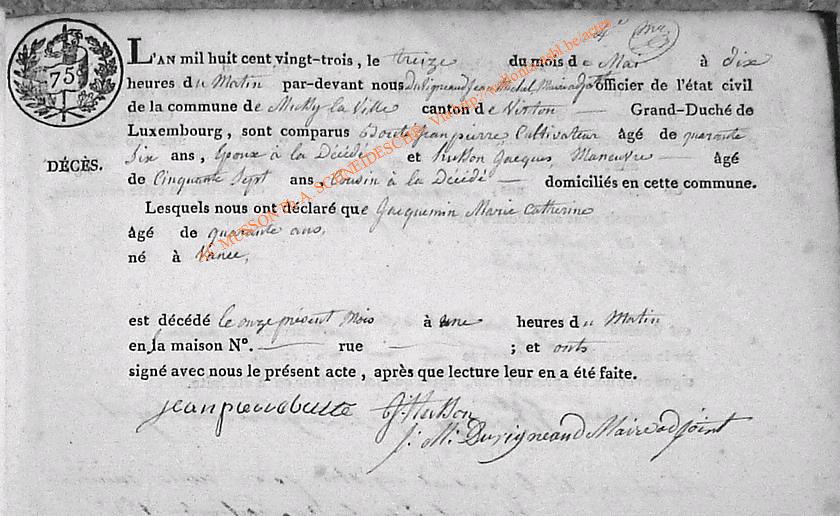 75
4e
L'AN mil huit cent vingt-trois, le treize du mois de Mai à dix
heures du Matin par-devant nous Duvigneaud Jean Michel Maire adjt officier de l'état civil
de la commune de Mussy la Ville canton de Virton Grand-Duché de
Luxembourg, sont comparus Jean pierre Cultivateur âgé de quarante
DÉCÈS.
Six ans, Epoux à la Décédé et husson Jacques, Manœuvre âgé
de Cinquante Sept ans Cousin à la Décédé domiciliés en cette commune.
Lesquels nous ont déclaré que Jacquemin Marie Catherine
âgé de quarante ans,
né à Vance,
est décédé le onze présent Mois à une heures du Matin
en la maison N°. rue ; et onts
signé avec nous le présent acte, après que lecture leur en a été faite.
jean pierre J. Husson
J. M. Duvigneaud Maire adjoint